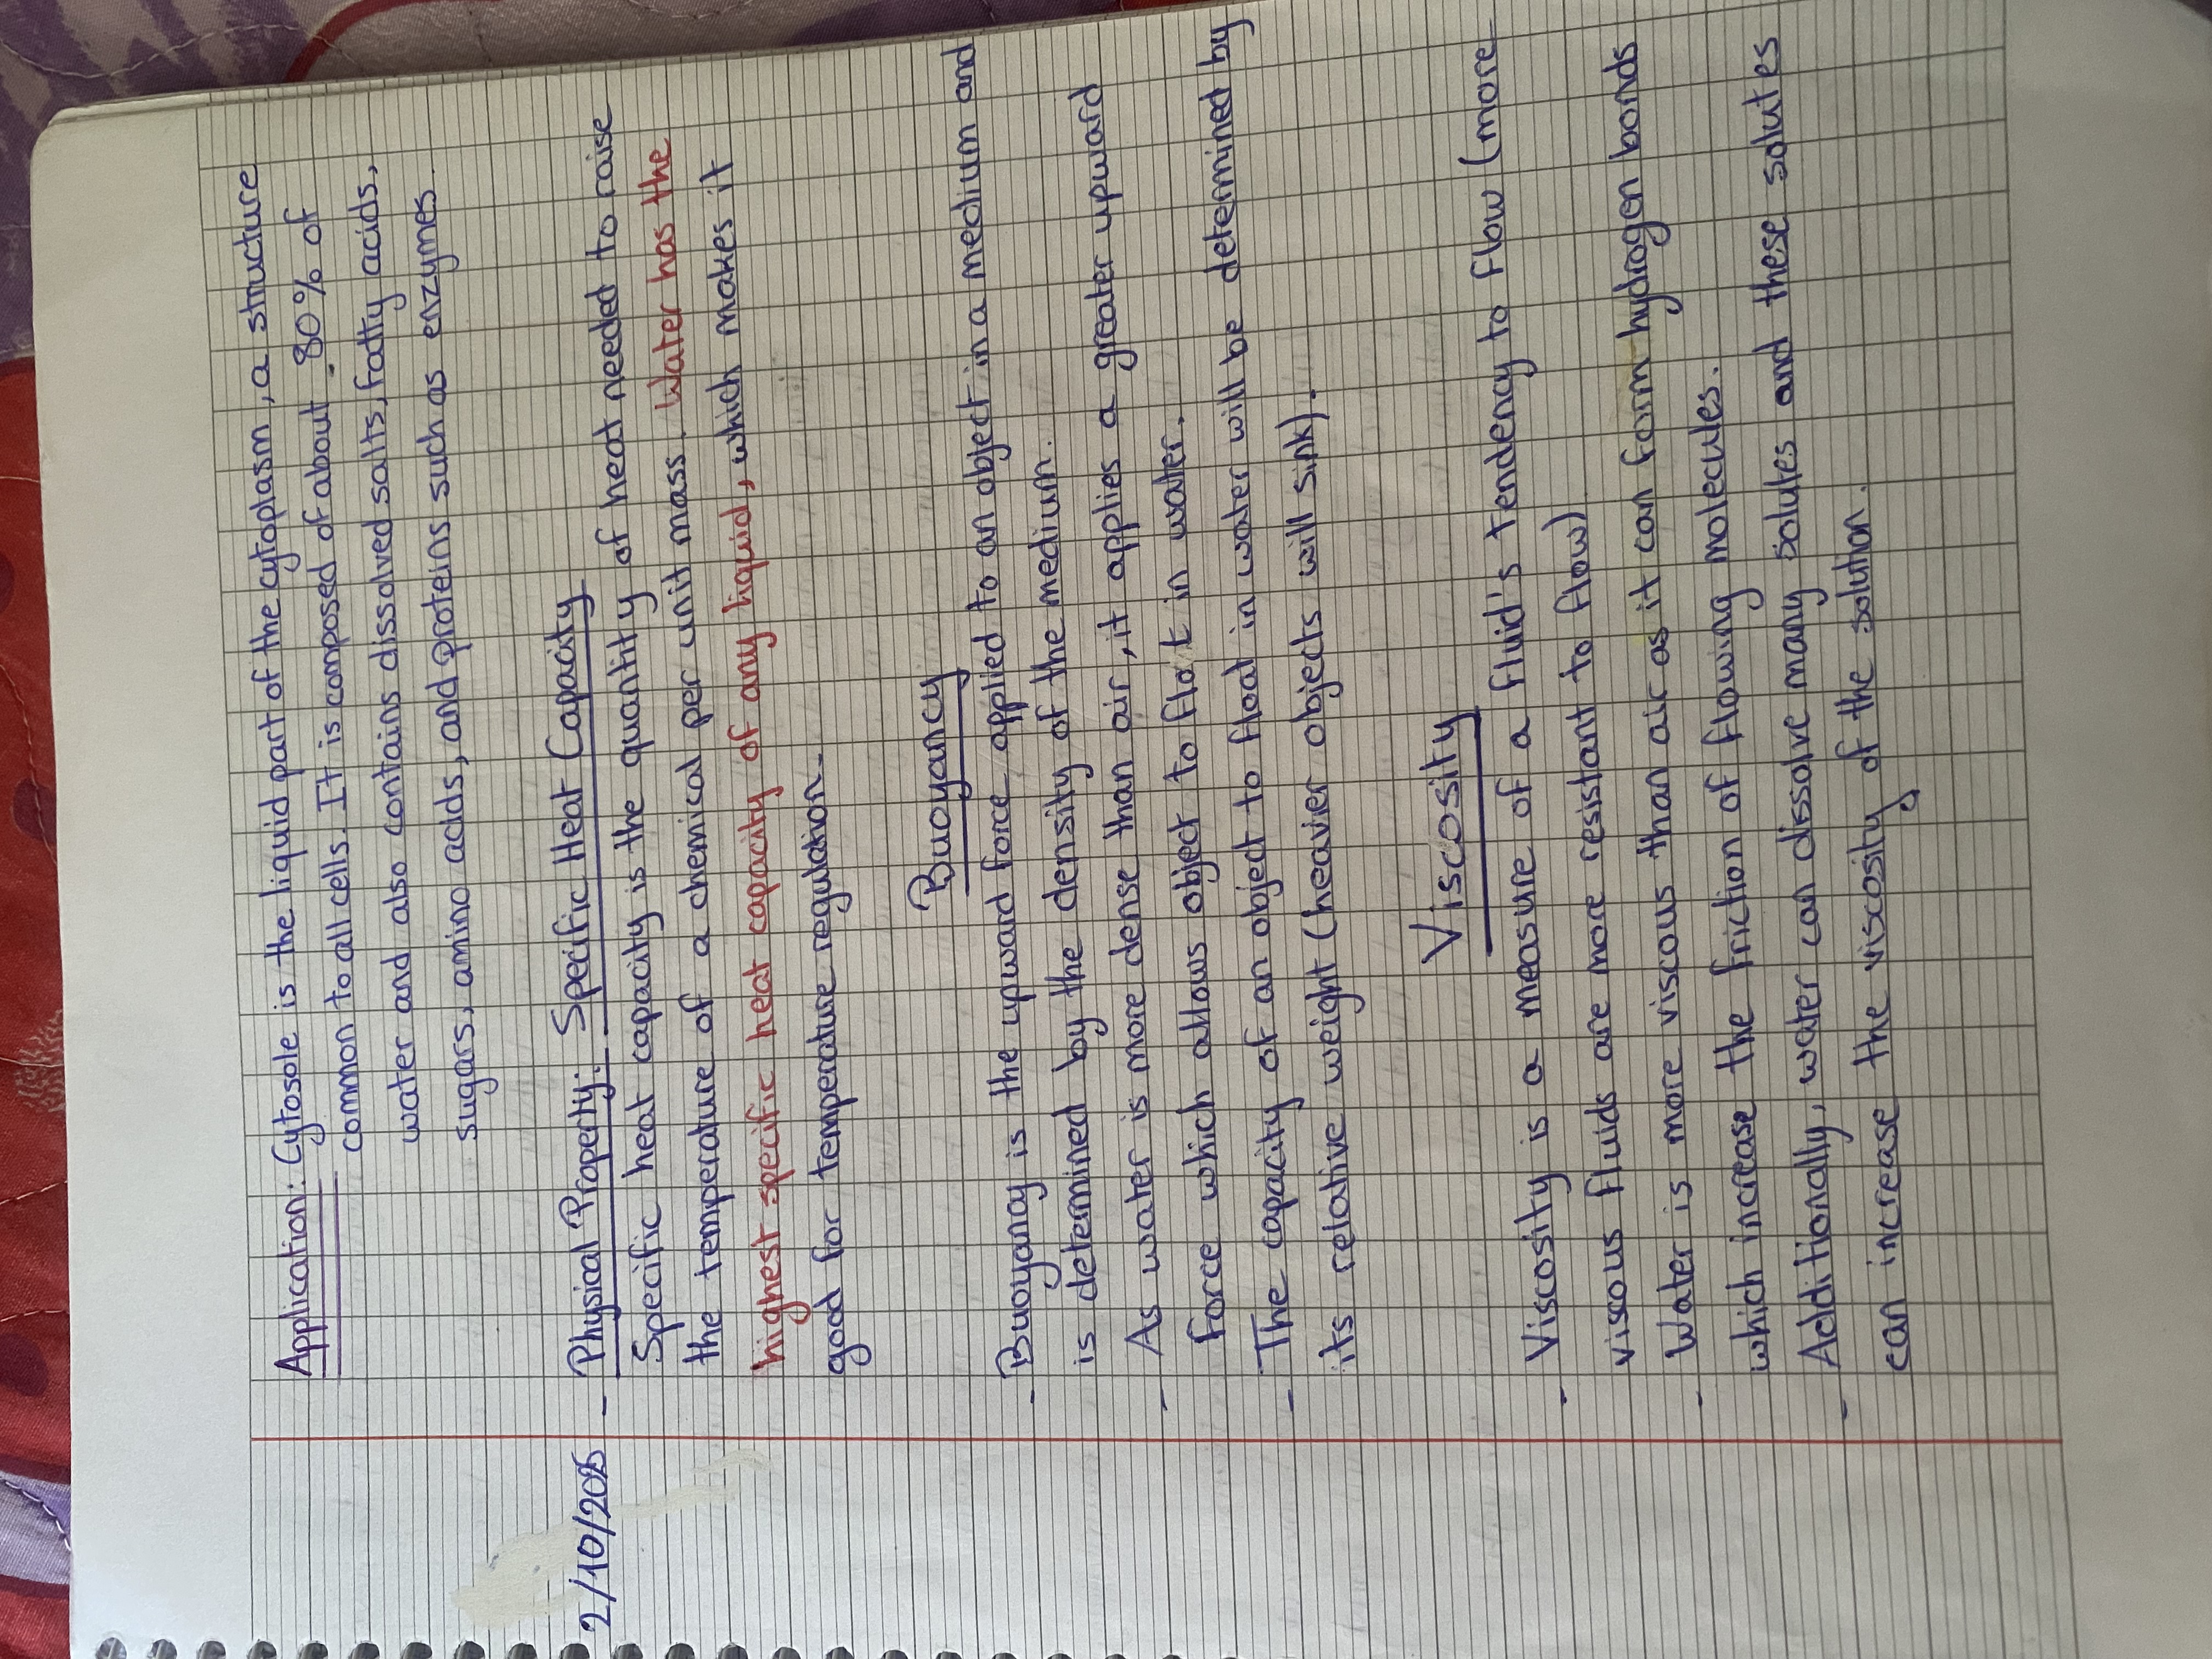 Application: Cytosole is the liquid part of the cytoplasm, a structure
common to all cells. It is composed of about 80% of
water and also contains dissolved salts, fatty acids,
sugars, amino acids, and proteins such as enzymes.
2/10/2025 - Physical Property: Specific Heat Capacity
Specific heat capacity is the quantity of heat needed to raise
the temperature of a chemical per unit mass. Water has the
highest specific heat capacity of any liquid, which makes it
good for temperature regulation.
Buoyancy
- Buoyancy is the upward force applied to an object in a medium and
is determined by the density of the medium.
- As water is more dense than air, it applies a greater upward
force which allows object to float in water.
- The capacity of an object to float in water will be determined by
its relative weight (heavier objects will sink).
Viscosity
- Viscosity is a measure of a fluid's tendency to flow (more
viscous fluids are more resistant to flow)
- Water is more viscous than air as it can form hydrogen bonds
which increase the friction of flowing molecules.
- Additionally, water can dissolve many solutes and these solutes
can increase the viscosity of the solution.